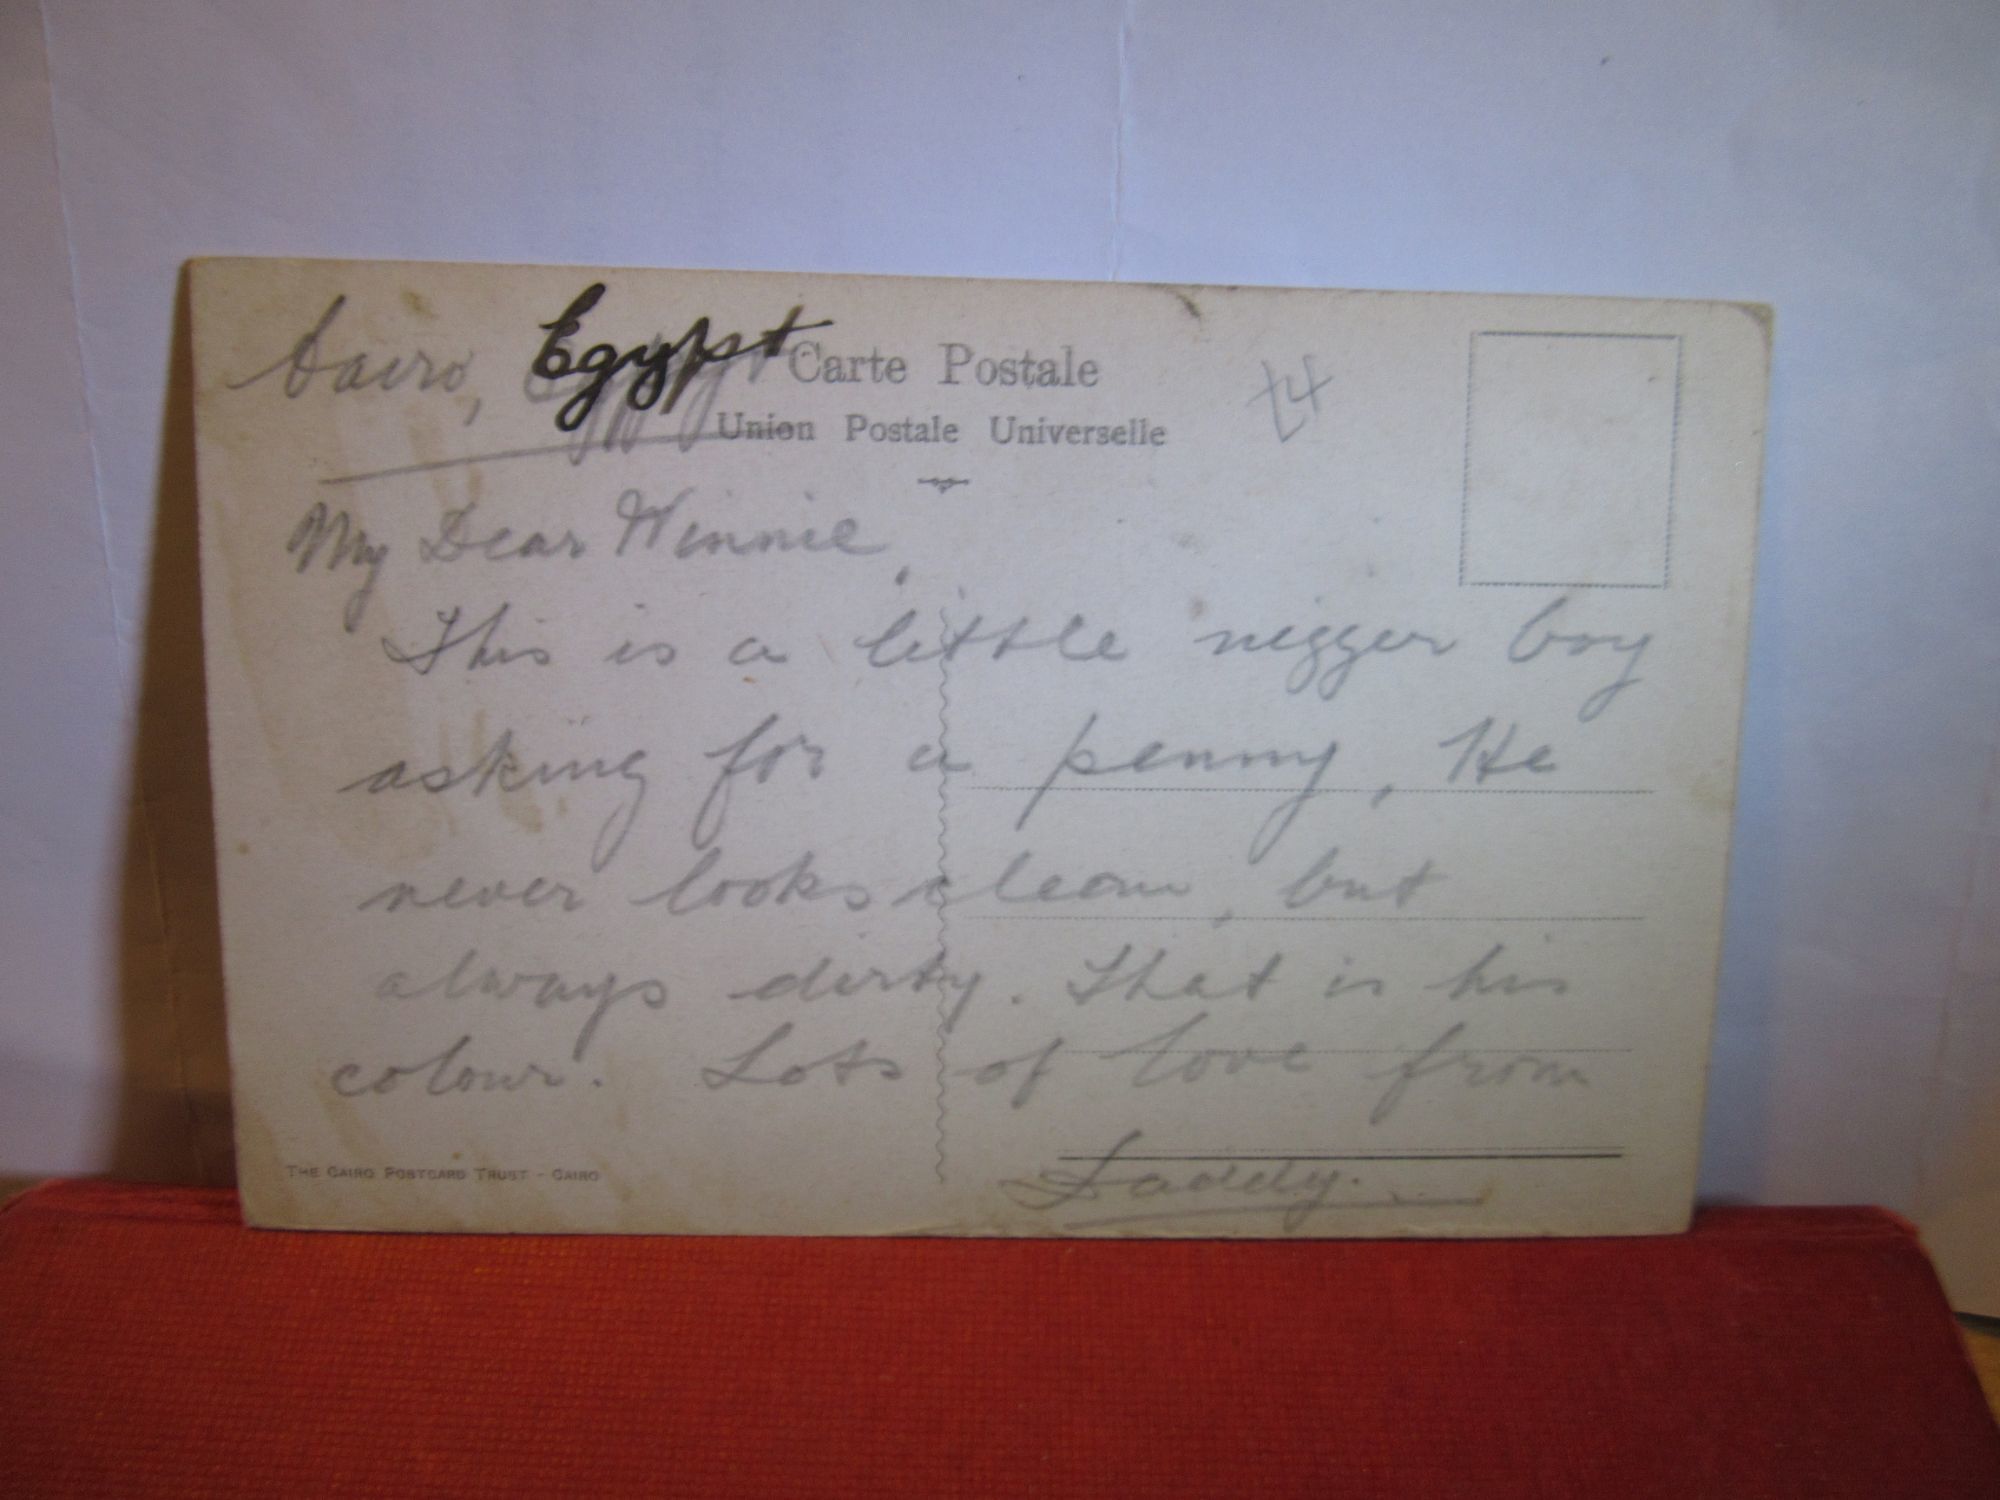 Cairo, Egypt
Carte Postale
Union Postale Universelle
£4
My Dear Winnie,
This is a little nigger boy
asking for a penny, He
never looks clean, but
always dirty. That is his
colour. Lots of love from
Daddy.
THE CAIRO POSTCARD TRUST - CAIRO